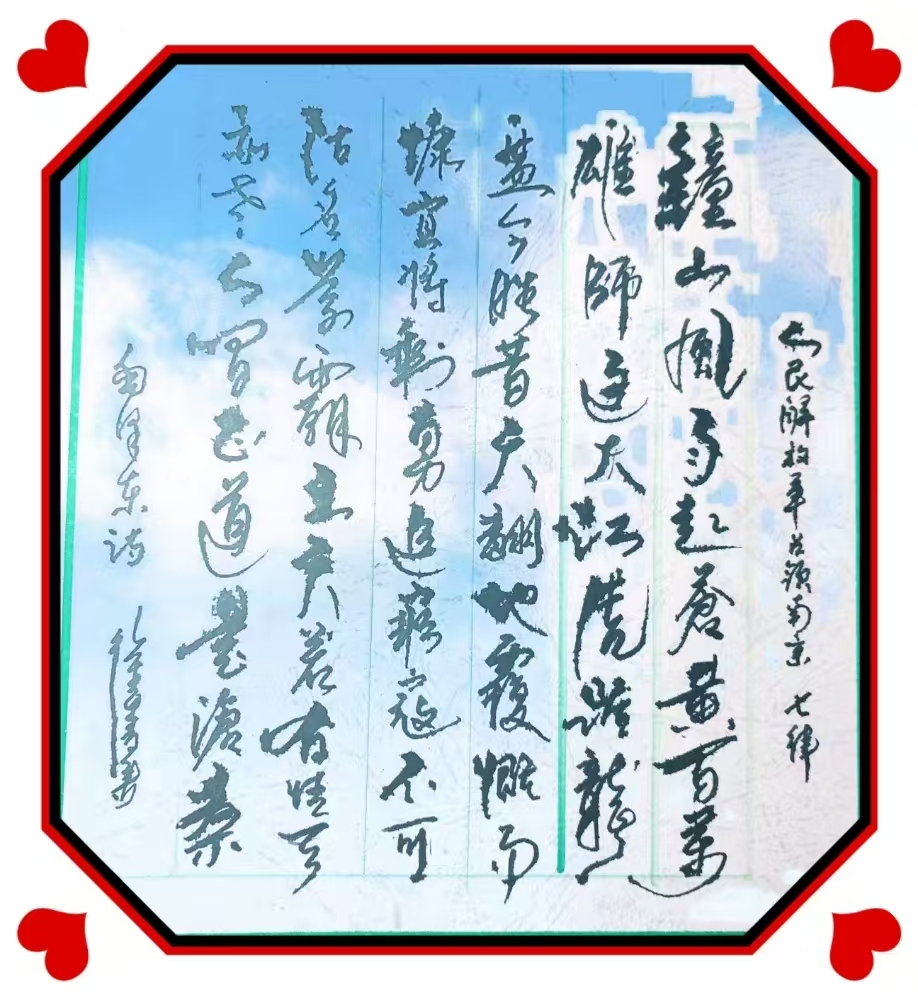 人民解放军占領南京 七律
鐘山風雨起蒼黄百萬
雄師过大江虎踞龍
盘今胜昔天翻地覆慨而
慷宜將剩勇追窮寇不可
沽名学霸王天若有情天
亦老人間正道是滄桑
毛泽东诗